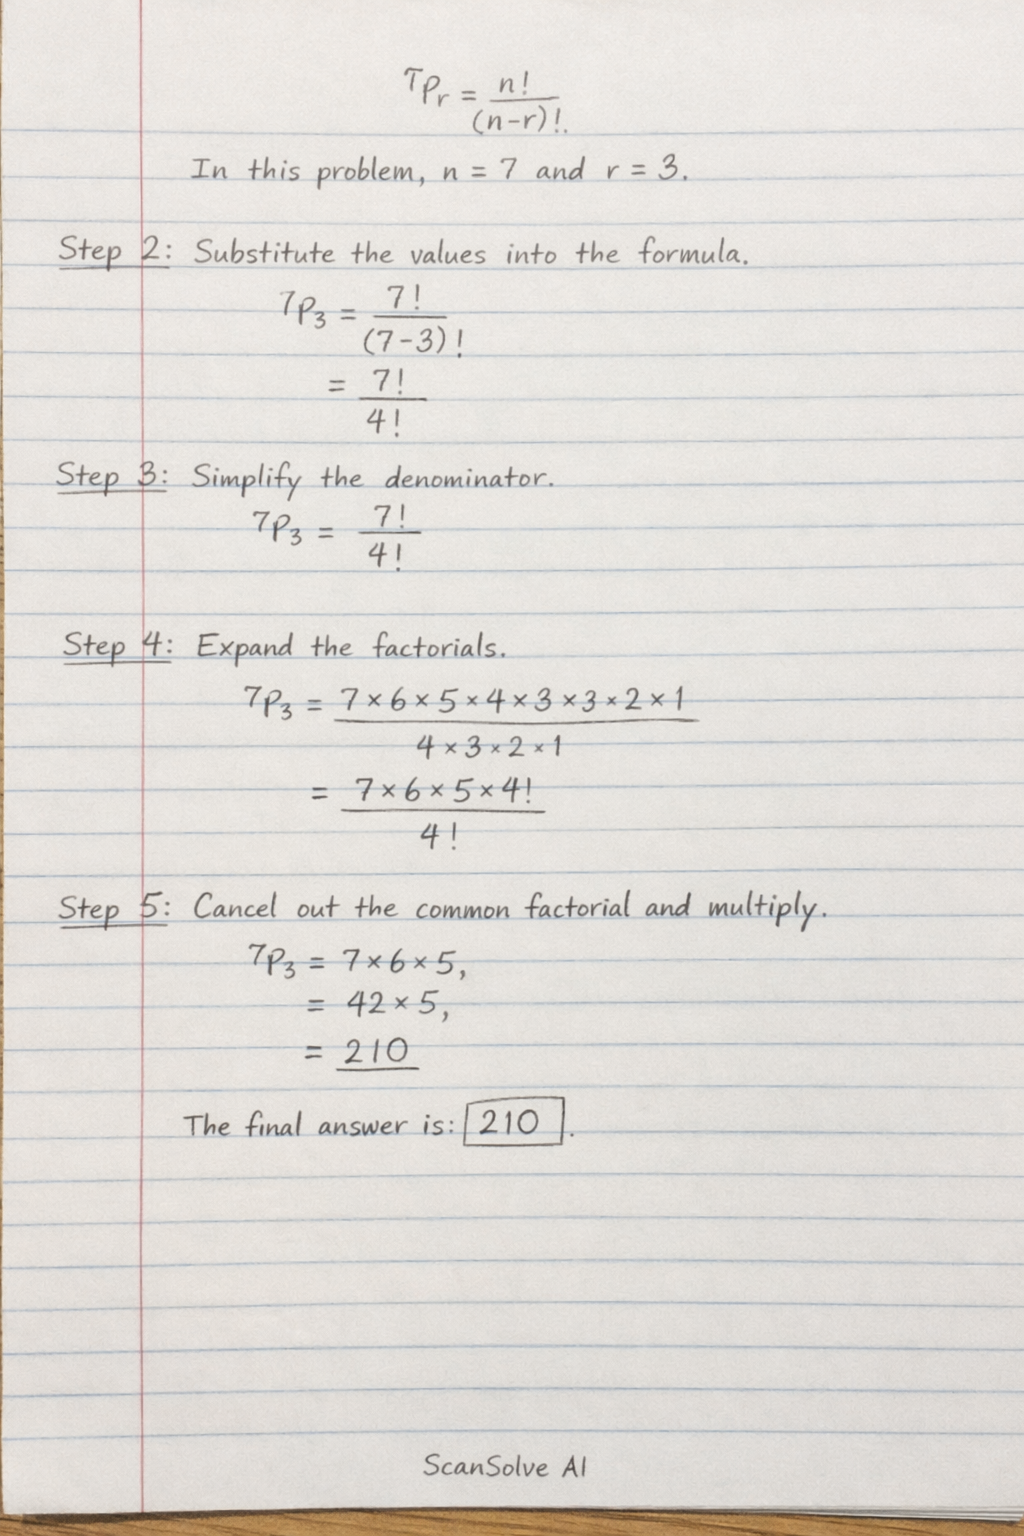 ᵀPᵣ = n!
(n-r)!.
In this problem, n = 7 and r = 3.
Step 2: Substitute the values into the formula.
⁷P₃ = 7!
(7-3)!
= 7!
4!
Step 3: Simplify the denominator.
⁷P₃ = 7!
4!
Step 4: Expand the factorials.
⁷P₃ = 7×6×5×4×3×3×2×1
4×3×2×1
= 7×6×5×4!
4!
Step 5: Cancel out the common factorial and multiply.
⁷P₃ = 7×6×5,
= 42×5,
= 210
The final answer is: 210.
ScanSolve AI